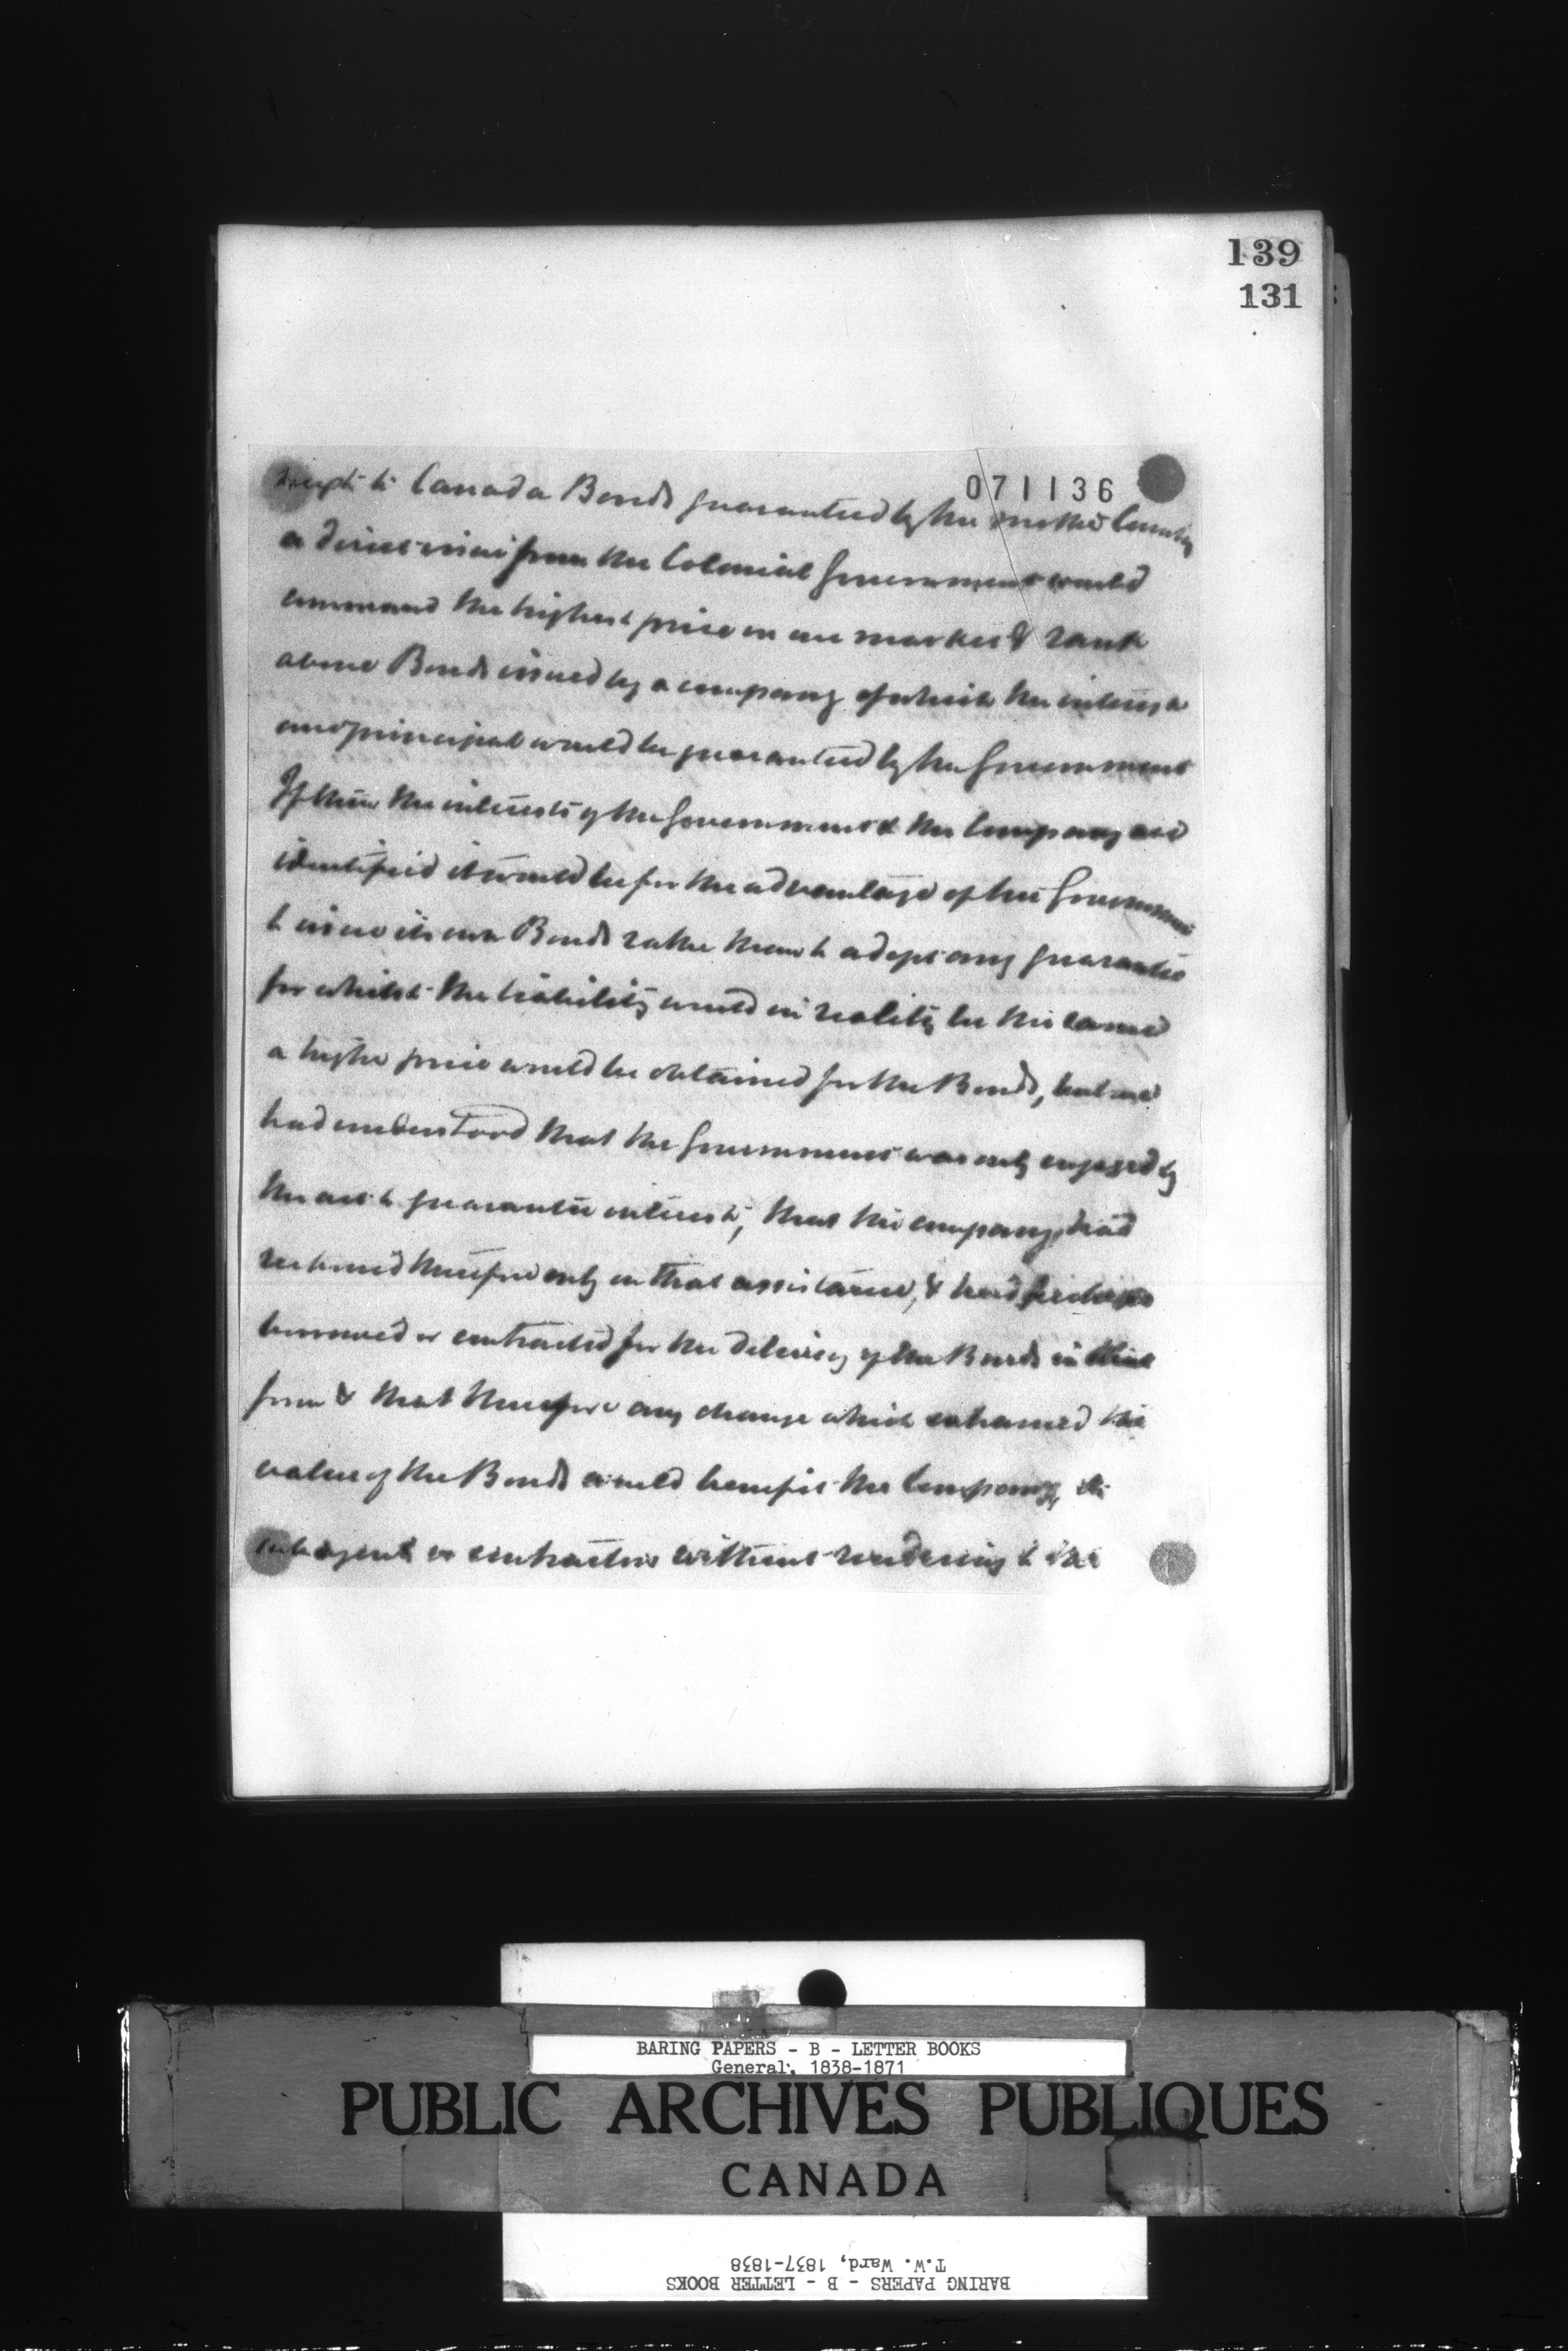 139
131
071136
to Canada Bonds guaranteed by the mother Country
a direct issue from the Colonial Government would
command the highest price in our market & rank
above Bonds issued by a company of which the interest
and principal would be guaranteed by the Government
If then the interests of the Government & the Company are
identified it would be for the advantage of the Government
to issue its own Bonds rather than to adopt any guarantee
for whilst the liability would in reality be the same
a higher price would be obtained for the Bonds, but we
had understood that the Government was only engaged by
the act to guarantee interest, that the company had
reckoned therefore only on that assistance, & had perhaps
borrowed or contracted for the delivery of the Bonds in that
form & that therefore any change which enhanced the
value of the Bonds would benefit the Company, its
agents or contractors without rendering to the
BARING PAPERS - B - LETTER BOOKS
General, 1838-1871
PUBLIC ARCHIVES PUBLIQUES
CANADA
BARING PAPERS - B - LETTER BOOKS
T.W. Ward, 1837-1838